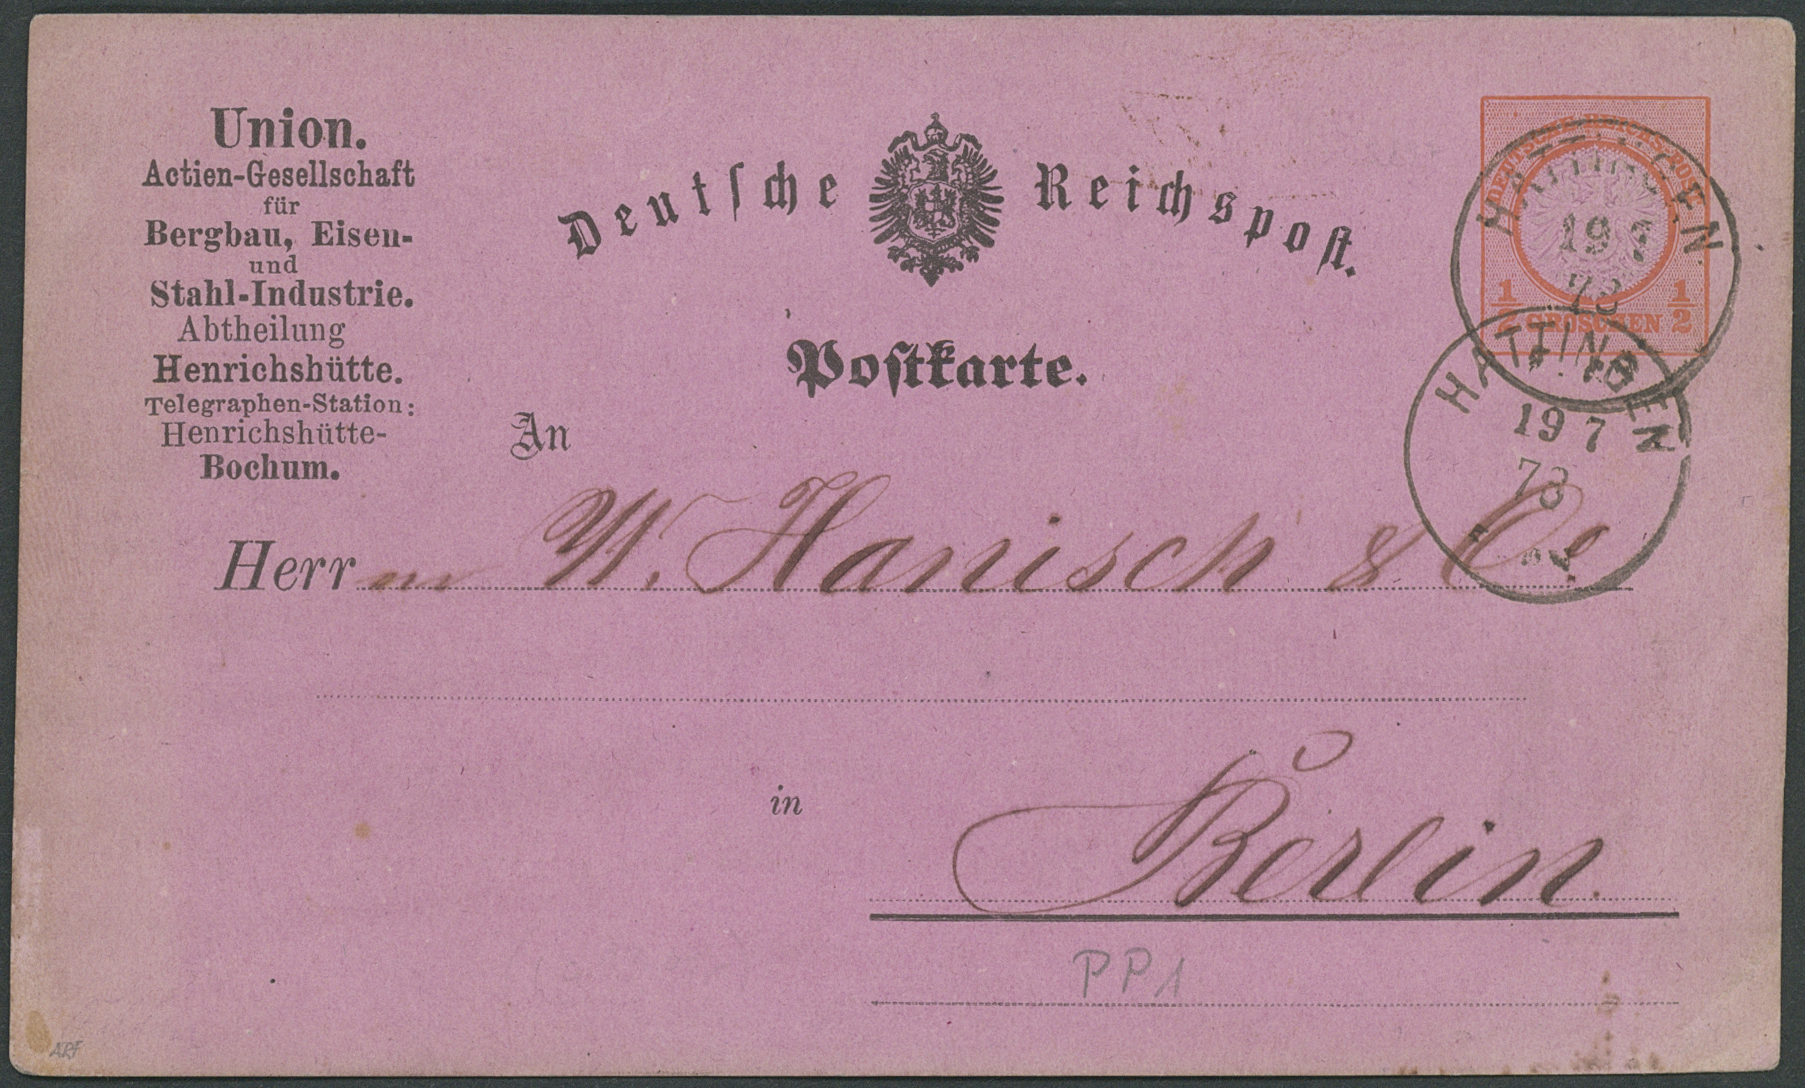 Union.
Actien-Gesellschaft
für
Bergbau, Eisen-
und
Stahl-Industrie.
Abtheilung
Henrichshütte.
Telegraphen-Station:
Henrichshütte-
Bochum.
Deutsche Reichspost.
Postkarte.
DEUTSCHE REICHS-POST
1/2 GROSCHEN 1/2
HATTINGEN
19 7
73
HATTINGEN
19 7
73
An
Herrn W. Hanisch & Co
in
Berlin.
PP1